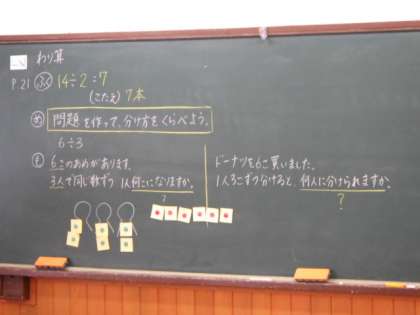 わり算
P.21 ふく 14÷2=7
(こたえ) 7本
め 問題を作って、分け方をくらべよう。
6÷3
も 6このあめがあります。
3人で同じ数ずつ 1人何こになりますか。
?
ドーナツを6こ買いました。
1人3こずつ分けると、何人に分けられますか。
?